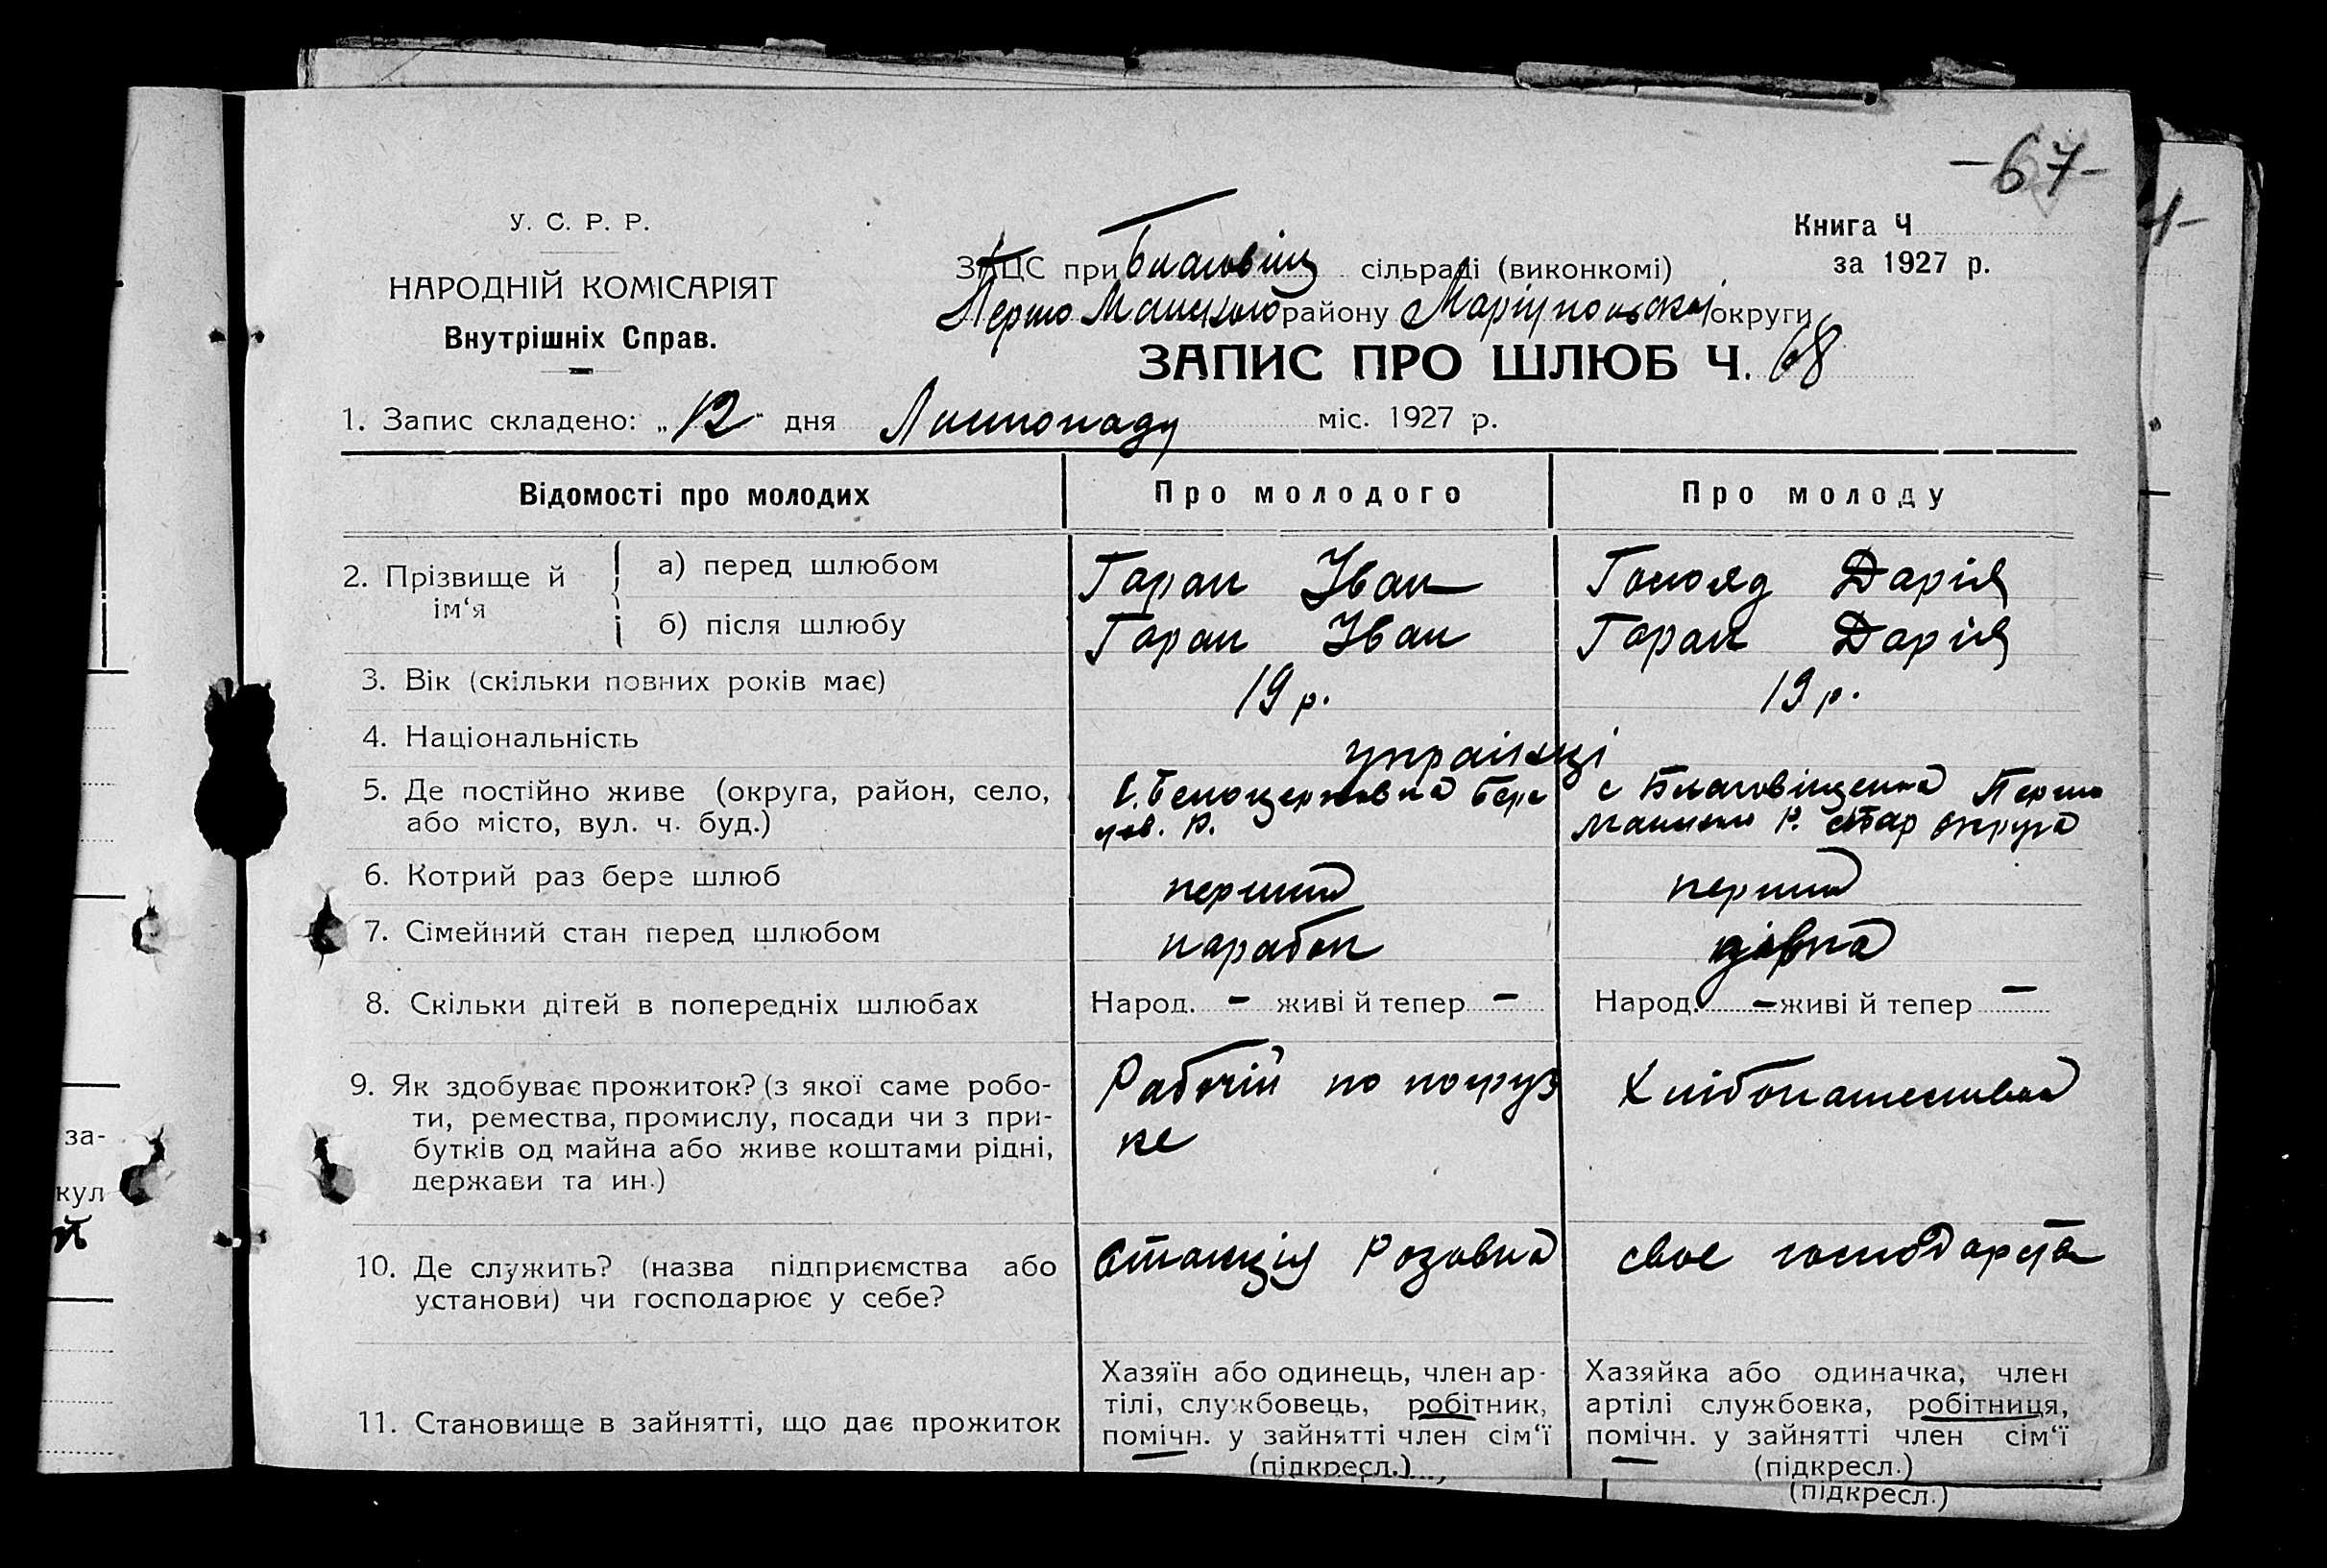 -67-
У. С. Р. Р.
Книга Ч
ЗАЦС при Благовіщ сільраді (виконкомі)
за 1927 р.
НАРОДНІЙ КОМІСАРІЯТ
Внутрішніх Справ.
району Маріупольської округи
ЗАПИС ПРО ШЛЮБ Ч. 68
1. Запис складено: „12" дня Листопаду міс. 1927 р.
Відомості про молодих
Про молодого
Про молоду
2. Прізвище й ім‘я
а) перед шлюбом
Гаран Іван
Дарія
б) після шлюбу
Гаран Іван
Гаран Дарія
3. Вік (скільки повних років має)
19 р.
19 р.
4. Національність
українці
5. Де постійно живе (округа, район, село,
або місто, вул. ч. буд.)
с. Белоцерковка
р.
с Благовіщенка Першо
р. округа
6. Котрий раз бере шлюб
перший
перший
7. Сімейний стан перед шлюбом
парабок
дівка
8. Скільки дітей в попередніх шлюбах
Народ. - живі й тепер -
Народ. - живі й тепер -
9. Як здобуває прожиток? (з якої саме робо-
ти, ремества, промислу, посади чи з при-
бутків од майна або живе коштами рідні,
держави та ин.)
Рабочій по погруз
ке
10. Де служить? (назва підприємства або
установи) чи господарює у себе?
Станція Розовка
своє господарство
11. Становище в зайнятті, що дає прожиток
Хазяїн або одинець, член ар-
тілі, службовець, робітник,
помічн. у зайнятті член сім‘ї
(підкресл.)
Хазяйка або одиначка, член
артілі службовка, робітниця,
помічн. у зайнятті член сім‘ї
(підкресл.)
(підкресл.)
за-
кул